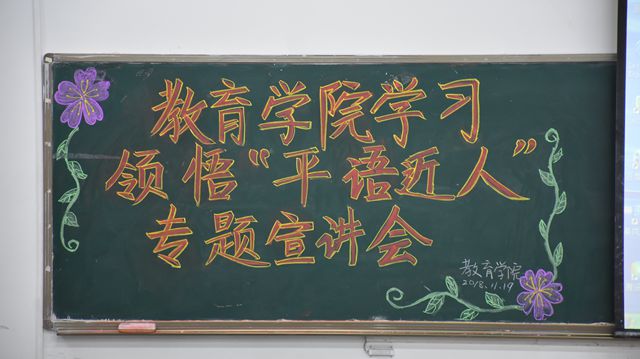 教育学院学习
领悟“平语近人”
专题宣讲会
教育学院
2018.11.19